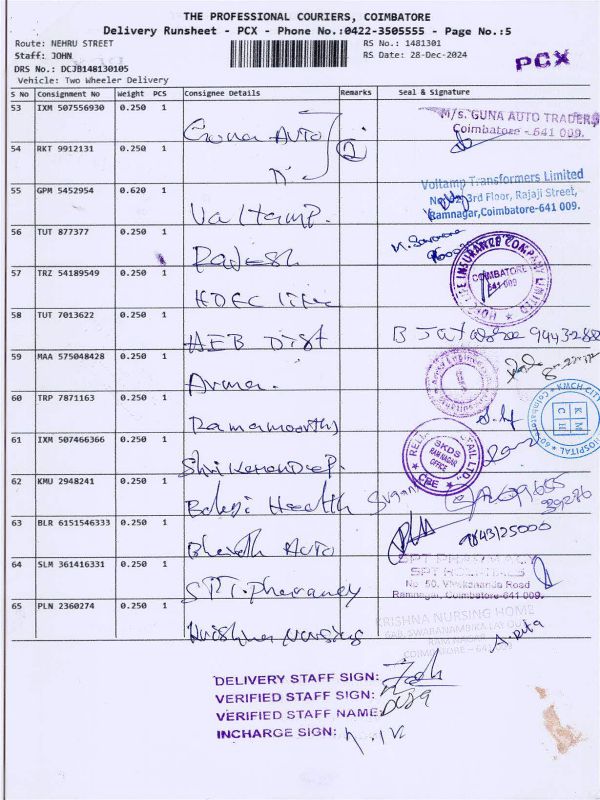 THE PROFESSIONAL COURIERS, COIMBATORE
Delivery Runsheet - PCX - Phone No.:0422-3505555 - Page No.:5
Route: NEHRU STREET RS No.: 1481301
Staff: JOHN RS Date: 28-Dec-2024
PCX
DRS No.: DCJB148130105
Vehicle: Two Wheeler Delivery
S No Consignment No Weight PCS Consignee Details Remarks Seal & Signature
53 IXM 507556930 0.250 1 Guna Auto
M/s. GUNA AUTO TRADERS
Coimbatore - 641 009.
54 RKT 9912131 0.250 1 2
55 GPM 5452954 0.620 1 Valtamp.
Voltamp Transformers Limited
3rd Floor, Rajaji Street,
Ramnagar, Coimbatore-641 009.
56 TUT 877377 0.250 1 Rajesh
57 TRZ 54189549 0.250 1 HDFC life
INSURANCE COMPANY LIMITED
COIMBATORE
641 009
58 TUT 7013622 0.250 1 AEB Dist
59 MAA 575048428 0.250 1
60 TRP 7871163 0.250 1 Ramamoorthy
KMCH-CITY HOSPITAL
KMCH
61 IXM 507466366 0.250 1
SKDS
RAM NAGAR
OFFICE
CBE
62 KMU 2948241 0.250 1 Health
63 BLR 6151546333 0.250 1 Bharath Auto
9843125000
64 SLM 361416331 0.250 1 SPT. Pharmacy
SPT PHARMACY
SPT HOSPITALS
No 50, Vivekananda Road
Ramnagar, Coimbatore-641 009.
65 PLN 2360274 0.250 1 Krishna Nursing
KRISHNA NURSING HOME
COIMBATORE - 641009
DELIVERY STAFF SIGN:
VERIFIED STAFF SIGN:
VERIFIED STAFF NAME:
INCHARGE SIGN: